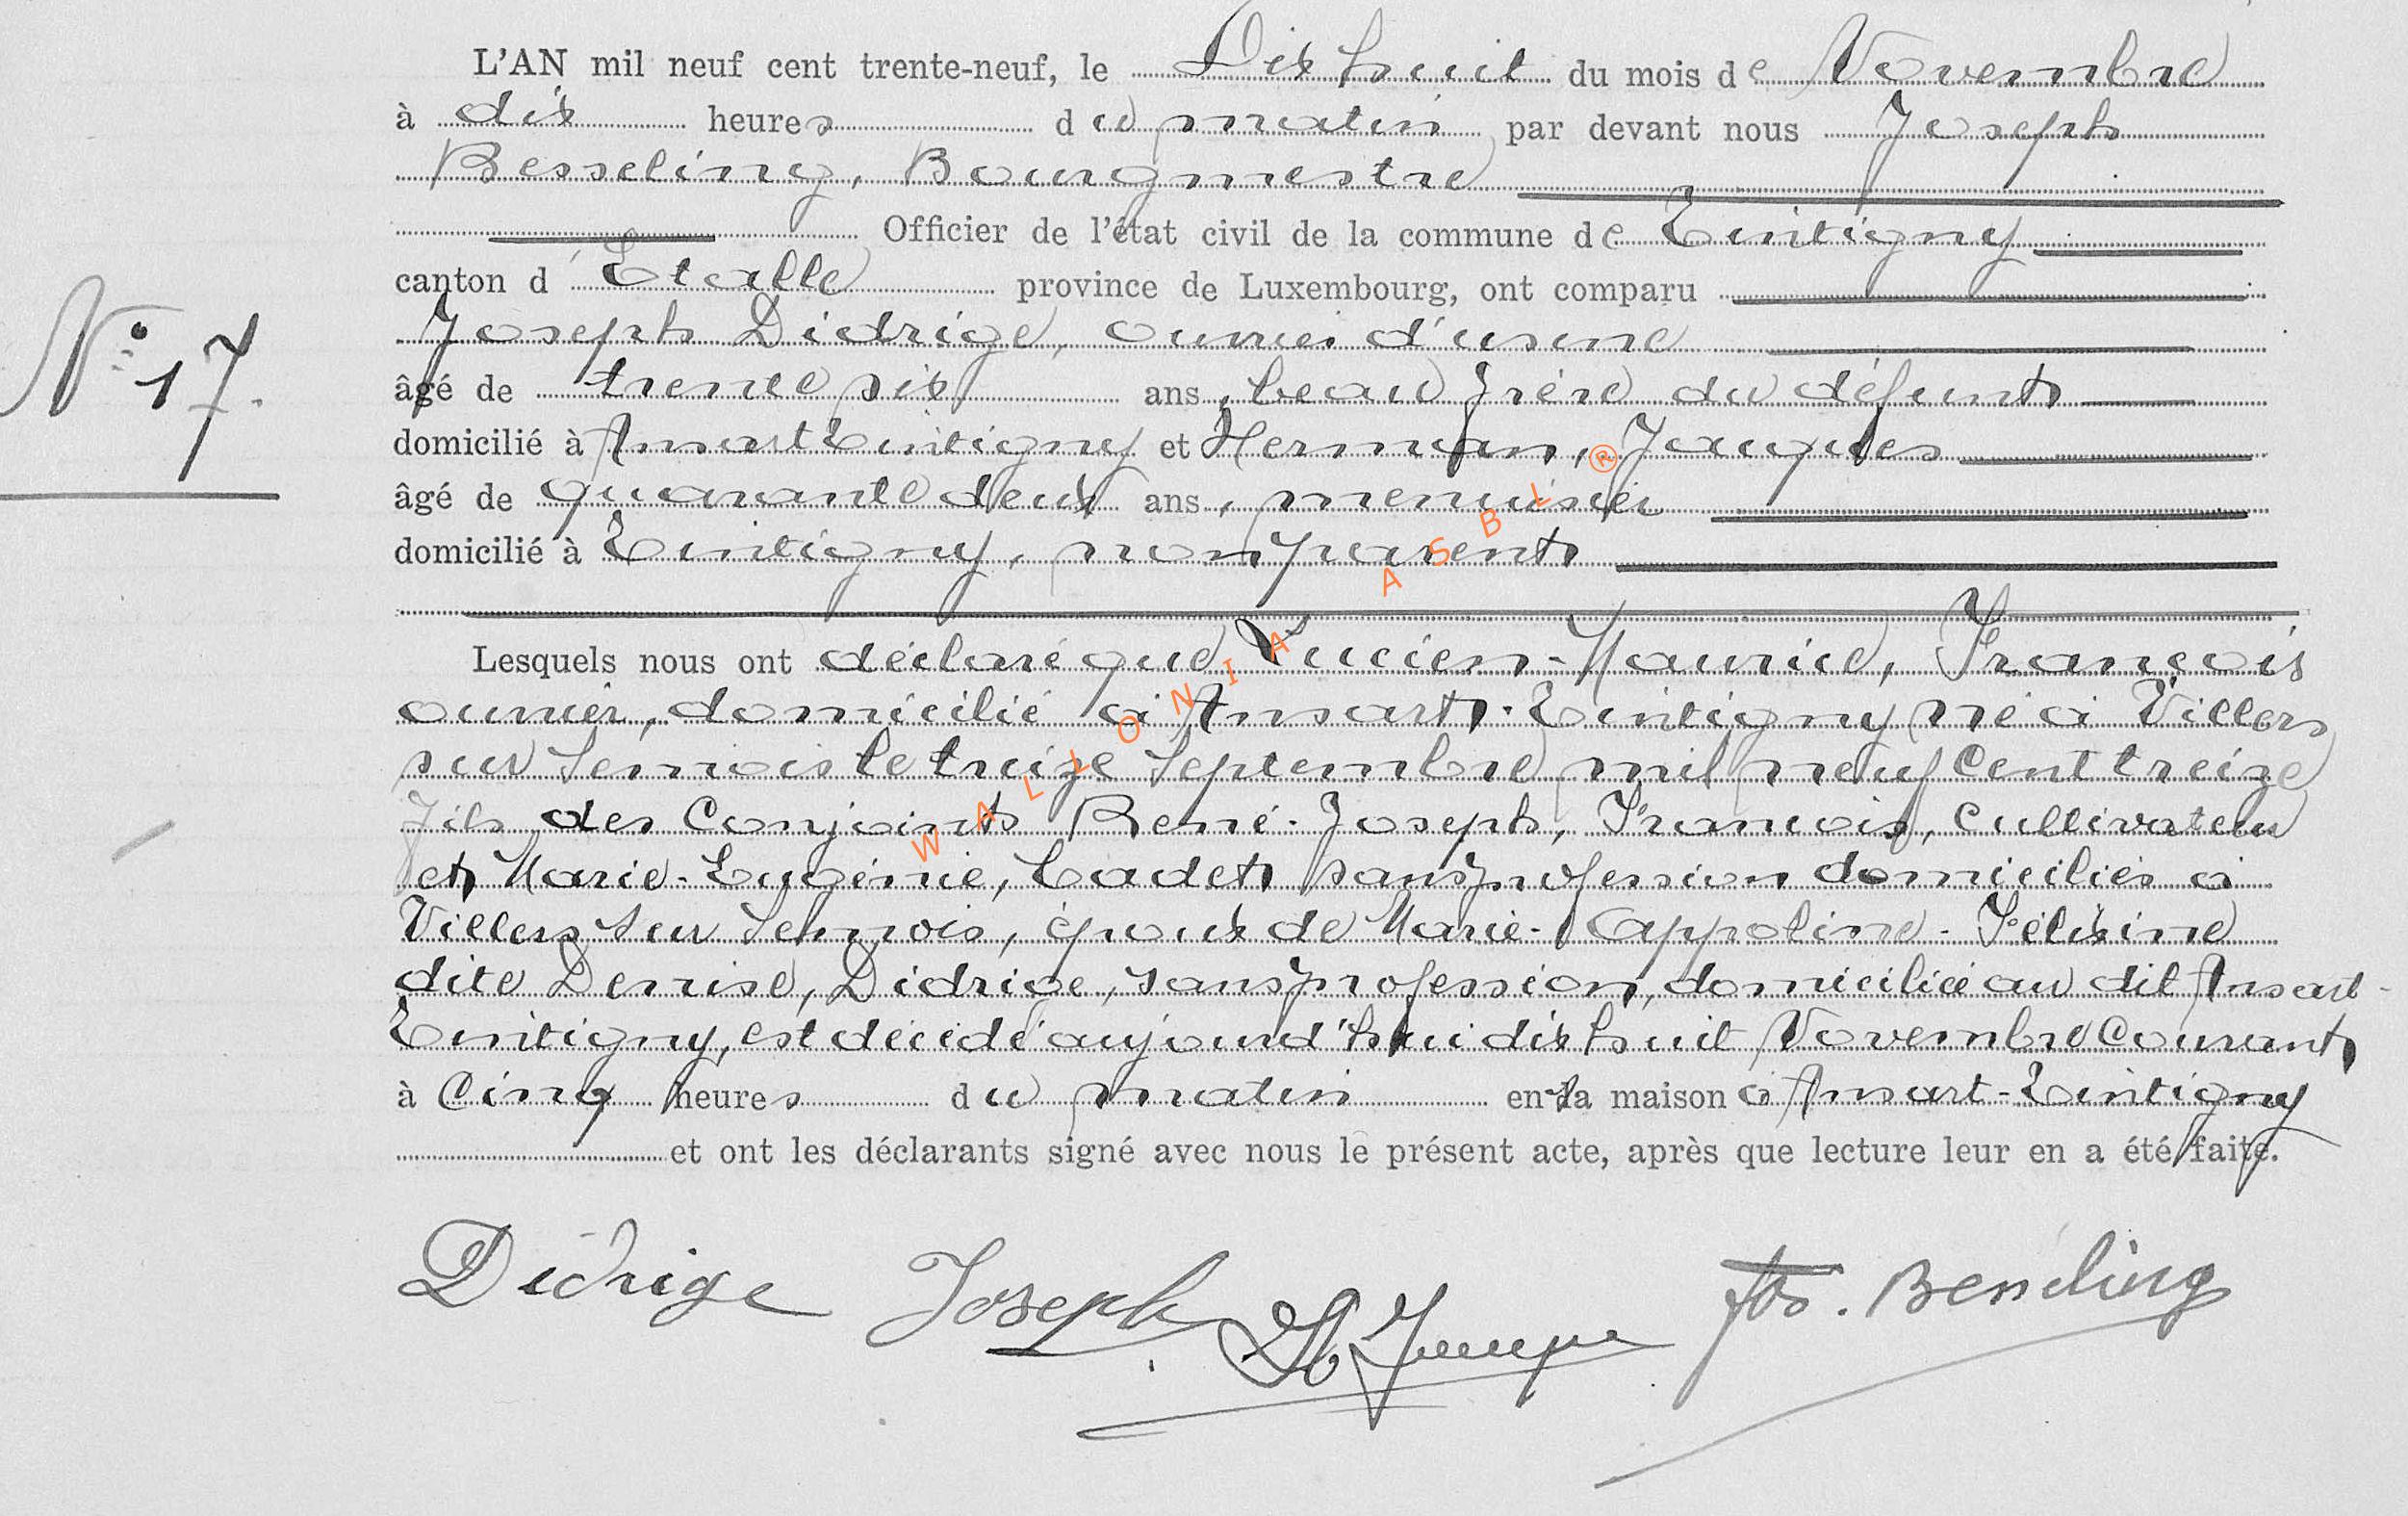 L'AN mil neuf cent trente-neuf, le Dix huit du mois de Novembre
à dix heures du matin par devant nous Joseph
Besseling, Bourgmestre
Officier de l'état civil de la commune de Tintigny
canton d'Etalle province de Luxembourg, ont comparu
Joseph Didrige, ouvrier d'usine
N° 17.
âgé de trente six ans, beau frère du défunt
domicilié à Ansart Tintigny et Herman, Jacques
âgé de quarante deux ans, menuisier
domicilié à Tintigny, non parent
Lesquels nous ont déclaré que Lucien-Maurice, François
ouvrier, domicilié à Ansart-Tintigny né à Villers
sur Semois le treize Septembre mil neuf cent treize
fils des conjoints René-Joseph, François, cultivateur
et Marie-Eugénie, Cadet sans profession domiciliés à
Villers sur Semois, époux de Marie-Appoline-Félixine
dite Denise, Didrige, sans profession, domiciliée au dit Ansart-
Tintigny, est décédé aujourd'hui dix huit Novembre courant
à cinq heures du matin en sa maison à Ansart-Tintigny
et ont les déclarants signé avec nous le présent acte, après que lecture leur en a été faite.
Didrige Joseph Jos. Besseling
WALLONIA ASBL ®